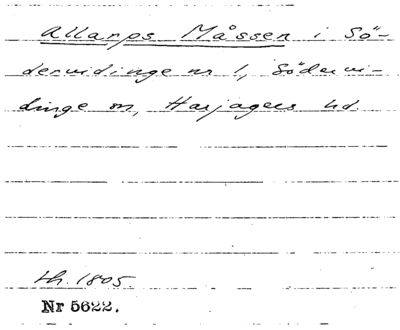 Allarps Måssen i Sö-
dervidinge nr 1, Södervi-
dinge sn, Harjagers hd.
th. 1805
Nr 5622.